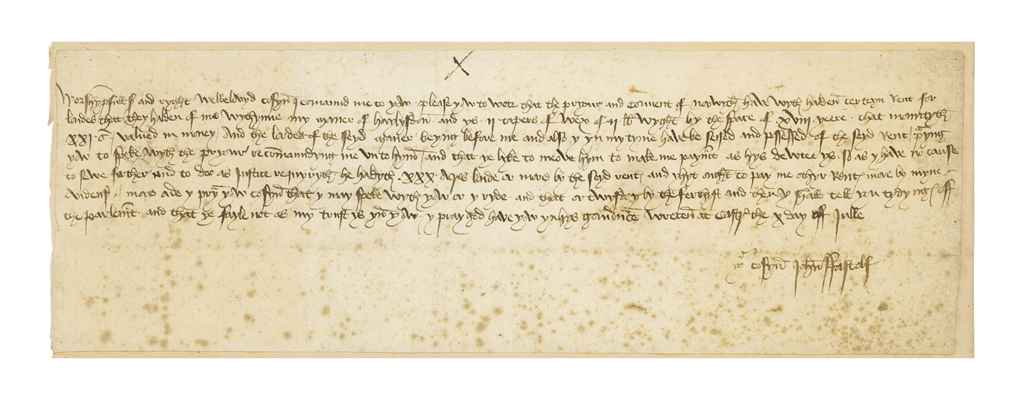 Worshypfull and ryght welbelovyd cosyn I comaund me to yaw please yaw to wete that the pryour and convent of norwich have wyth halden certeyn rent for
landes that they halden of me wythynne my maner of haylysdon and ys ii tapers of wex of ii lb wyght by the space of xviii yeere that mountyth
xxi s valued in money And the lordes of the seyd maner beyng before me and also y yn my tyme have be seised and possessed of the seyd rent prayng
yaw to speke wyth the pryour recomaundyng me un to hym and that ye like to meove hym to make me payment as hys dewtee ys so as y have no cause
to sewe farther and to doo as justice requiryth he haldyth xxx acres lande or more be the seyd rent and yhyt ought to pay me othyr rent more be myne
evidens more ovyr y prey yaw cosyn that y may speke wyth yaw or y ryde and that on thursday by the ferthest and then y shall tell you tydyngs off
the parlement and that ye fayle not as my trust ys yn yaw y pray god have yaw yn hys governance wreten at Castr the x day off Julle
yr cosyn John ffastolf